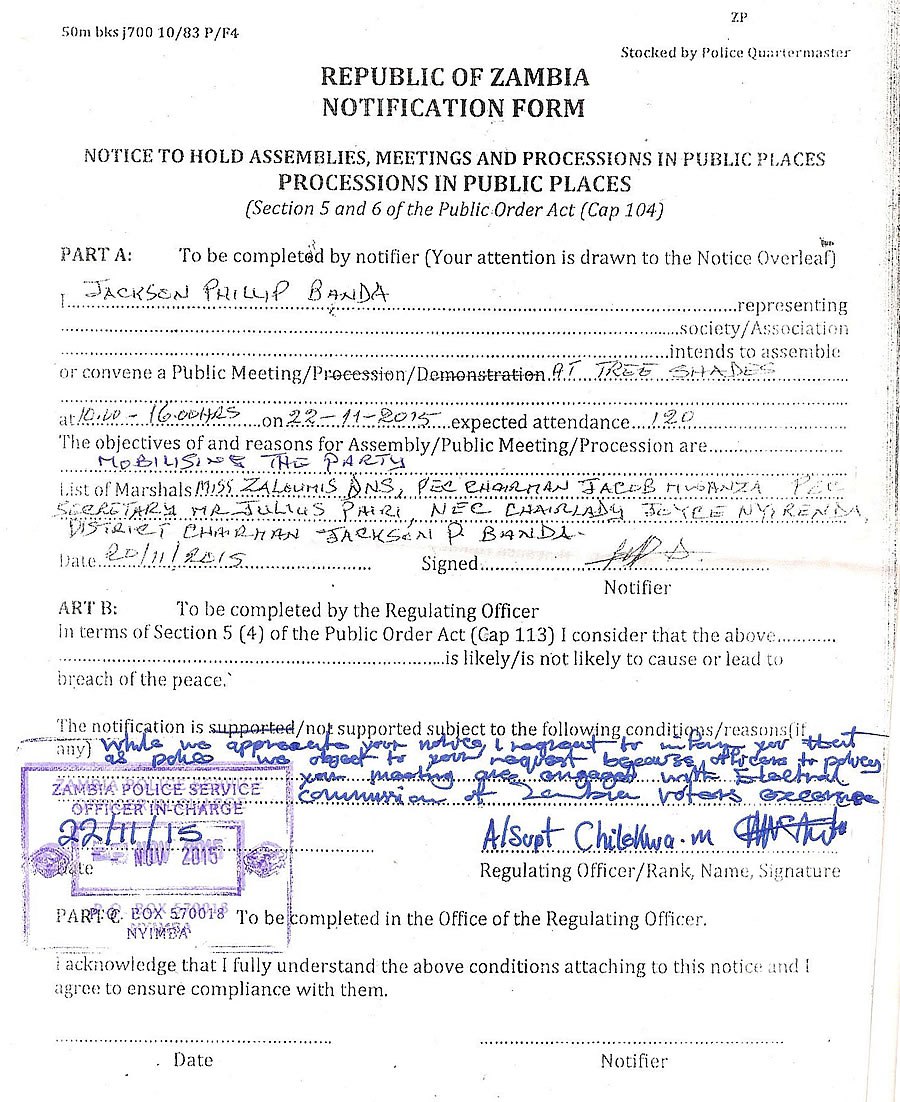 ZP
50m bks j700 10/83 P/F4
Stocked by Police Quartermaster
REPUBLIC OF ZAMBIA
NOTIFICATION FORM
NOTICE TO HOLD ASSEMBLIES, MEETINGS AND PROCESSIONS IN PUBLIC PLACES
PROCESSIONS IN PUBLIC PLACES
(Section 5 and 6 of the Public Order Act (Cap 104)
PART A: To be completed by notifier (Your attention is drawn to the Notice Overleaf)
I JACKSON PHILLIP BANDA representing
society/Association
intends to assemble
or convene a Public Meeting/Procession/Demonstration AT TREE SHADES
at 10.00 - 16.00HRS on 22-11-2015 expected attendance 120
The objectives of and reasons for Assembly/Public Meeting/Procession are
MOBILISING THE PARTY
List of Marshals MISS ZALOUMIS DNS, PEC CHAIRMAN JACOB MWANZA PEC
SECRETARY MR JULIUS PHIRI, NEC CHAIRLADY JOYCE NYIRENDA,
DISTRICT CHAIRMAN JACKSON P BANDA.
Date 20/11/2015 Signed
Notifier
ART B: To be completed by the Regulating Officer
In terms of Section 5 (4) of the Public Order Act (Cap 113) I consider that the above
is likely/is not likely to cause or lead to
breach of the peace.
The notification is supported/not supported subject to the following conditions/reasons(if
any) While we appreciate your notice, I regret to inform you that
as police we object to your request because officers to police
your meeting are engaged with Electoral
commission of Zambia voters exercise
ZAMBIA POLICE SERVICE
OFFICER IN-CHARGE
22/11/15
NOV 2015
A/Supt Chilekwa.m
Date
Regulating Officer/Rank, Name, Signature
P.O. BOX 570018
NYIMBA
PART C. To be completed in the Office of the Regulating Officer.
I acknowledge that I fully understand the above conditions attaching to this notice and I
agree to ensure compliance with them.
Date Notifier